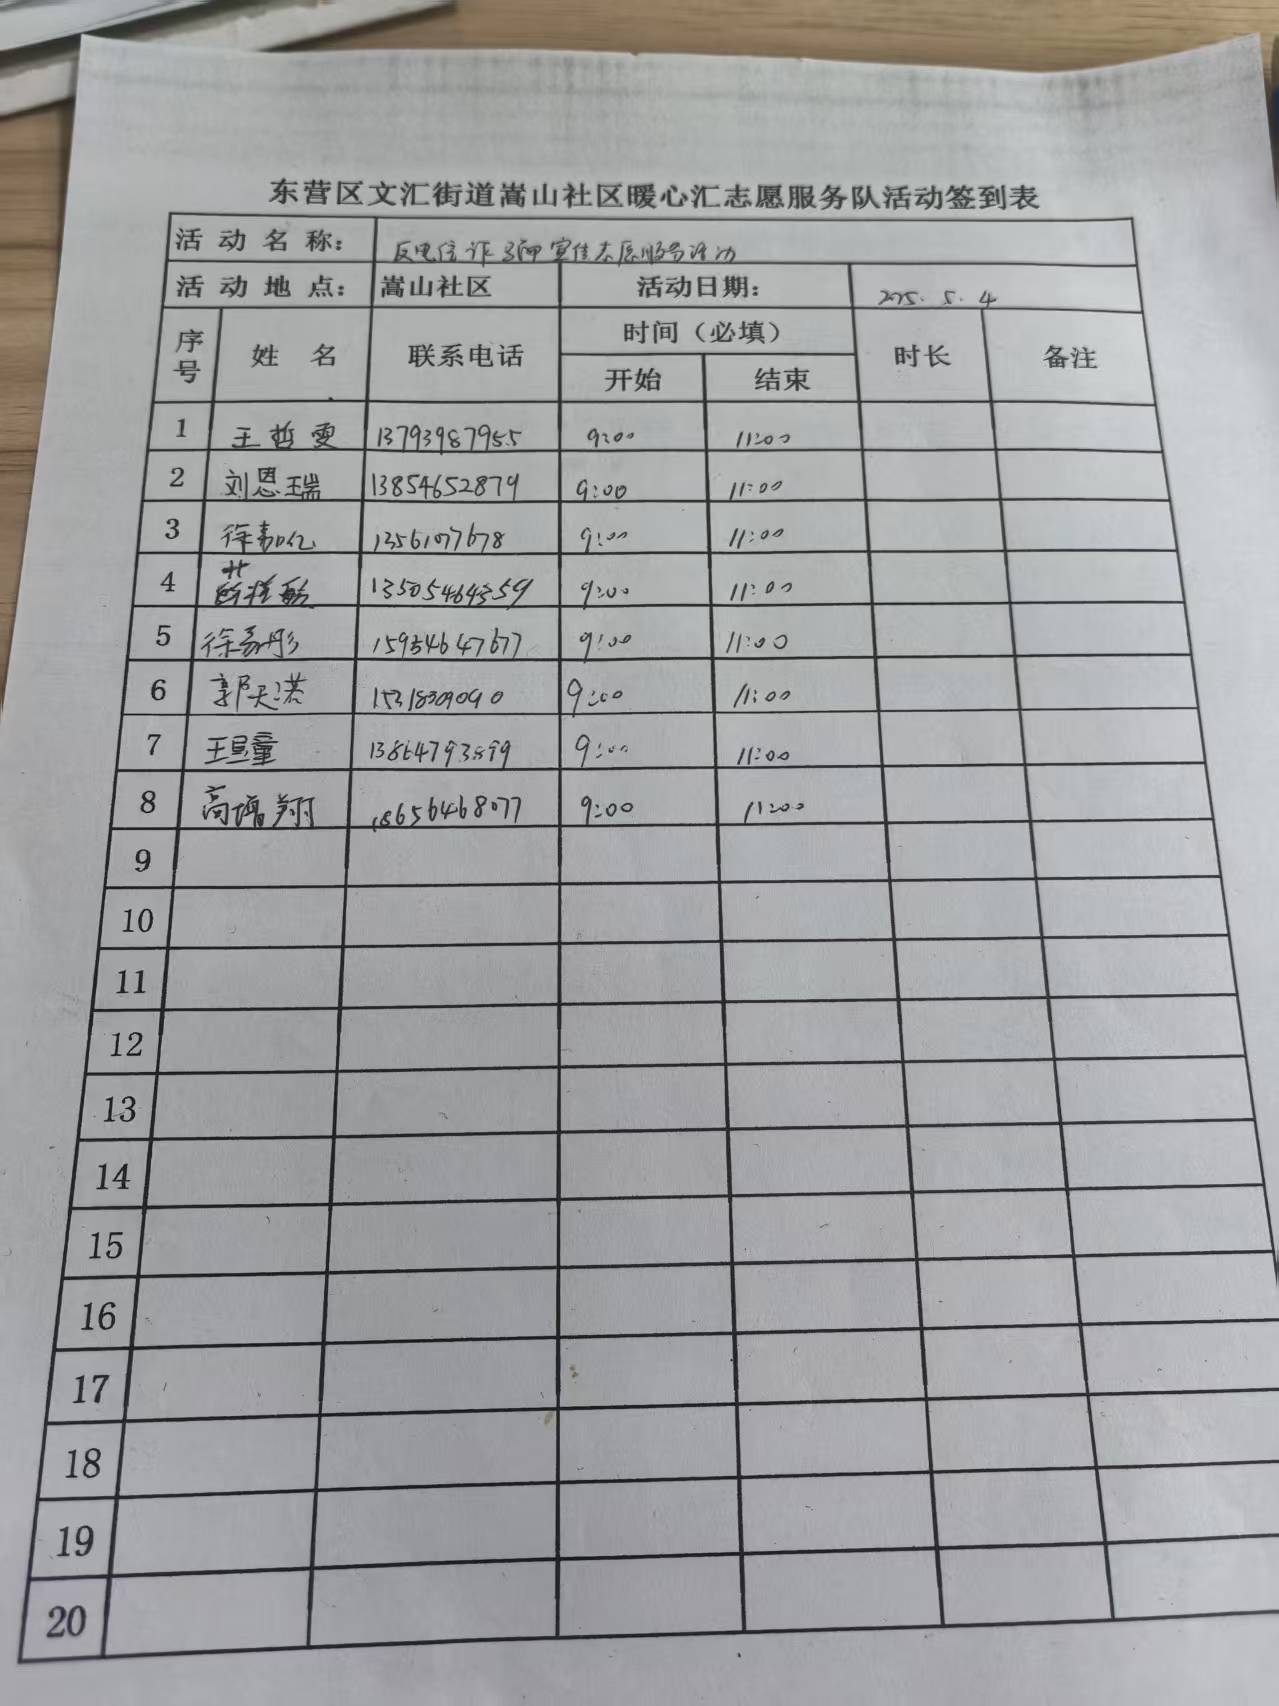 东营区文汇街道嵩山社区暖心汇志愿服务队活动签到表
活动名称： 反电信诈骗宣传志愿服务活动
活动地点： 嵩山社区 活动日期： 2025.5.4
序号 姓名 联系电话 时间（必填） 时长 备注
开始 结束
1 王哲雯 13793987955 9:00 11:00
2 刘恩瑞 13854652879 9:00 11:00
3 徐嘉亿 13561077678 9:00 11:00
4 9:00 11:00
5 徐嘉彤 15954647677 9:00 11:00
6 郭天诺 15318309090 9:00 11:00
7 王昱童 13864793899 9:00 11:00
8 高增翔 18656468077 9:00 11:00
9
10
11
12
13
14
15
16
17
18
19
20